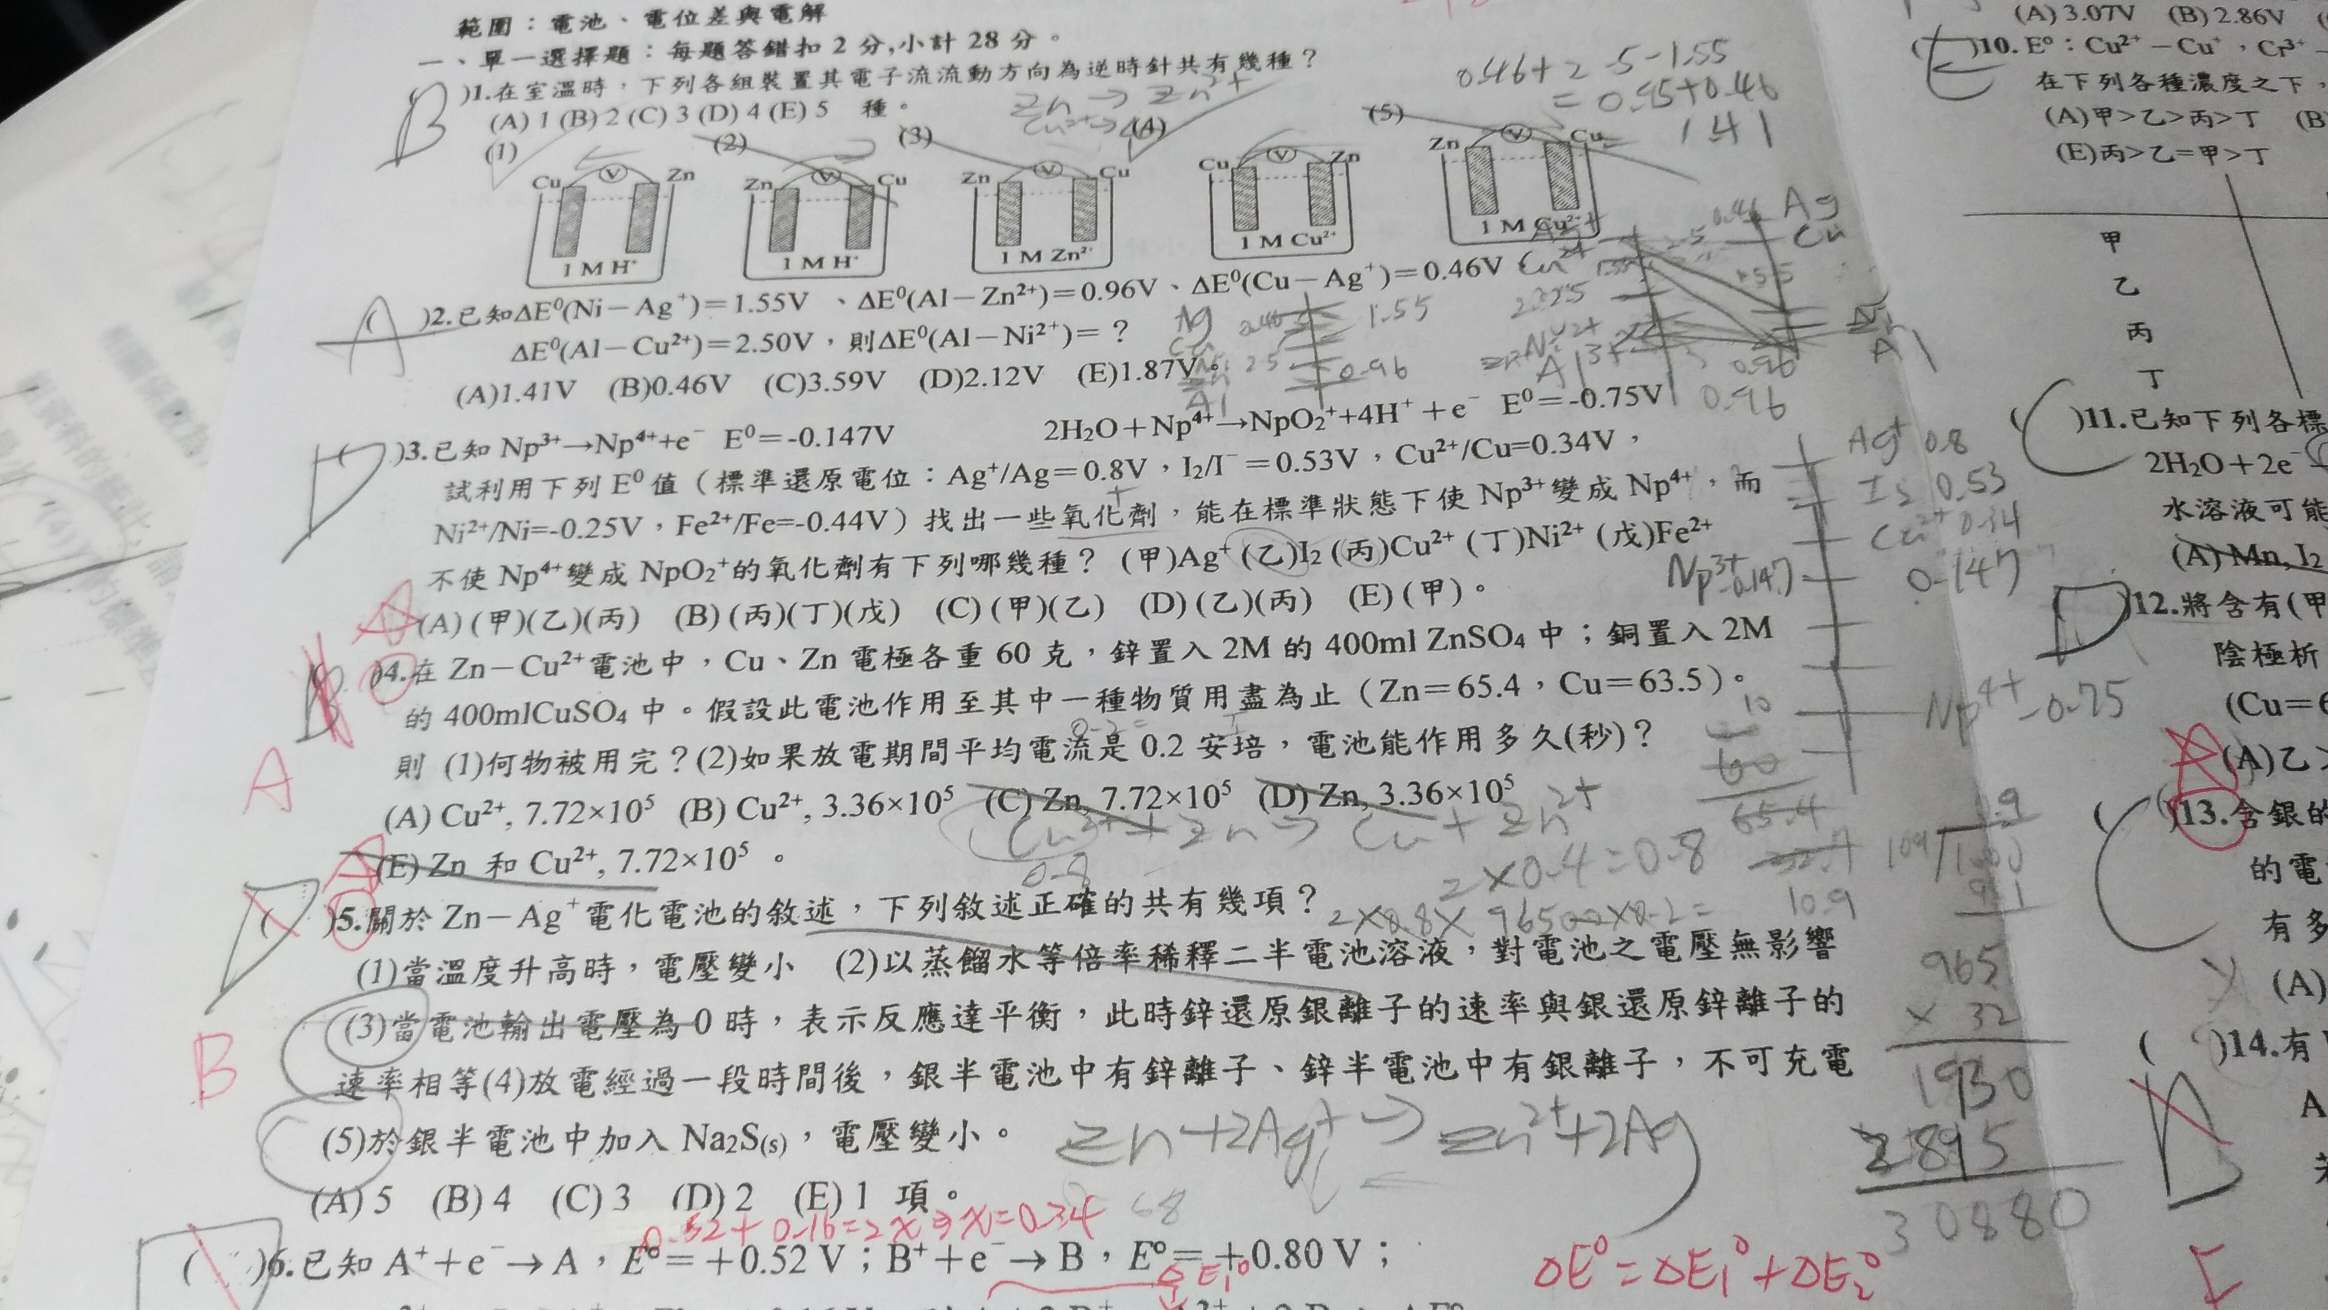 範圍：電池、電位差與電解
一、單一選擇題：每題答錯扣 2 分,小計 28 分。
B )1.在室溫時，下列各組裝置其電子流流動方向為逆時針共有幾種？
(A) 1 (B) 2 (C) 3 (D) 4 (E) 5 種。
Zn → Zn²⁺
(1) (2) (3) (4) (5)
Cu V Zn Zn V Cu Zn V Cu Cu V Zn Zn V Cu
1 M H⁺ 1 M H⁺ 1 M Zn²⁺ 1 M Cu²⁺ 1 M Cu²⁺
0.46+2.5-1.55
=0.95+0.46
=1.41
A ( )2.已知ΔE⁰(Ni－Ag⁺)＝1.55V 、ΔE⁰(Al－Zn²⁺)＝0.96V、ΔE⁰(Cu－Ag⁺)＝0.46V
ΔE⁰(Al－Cu²⁺)＝2.50V，則ΔE⁰(Al－Ni²⁺)＝？
(A)1.41V (B)0.46V (C)3.59V (D)2.12V (E)1.87V。
Ag 1.55
2.5 0.96
Al
Ag
Cu
Al
0.96
D ( )3.已知 Np³⁺→Np⁴⁺+e⁻ E⁰＝-0.147V 2H₂O＋Np⁴⁺→NpO₂⁺+4H⁺＋e⁻ E⁰＝-0.75V
試利用下列 E⁰ 值（標準還原電位：Ag⁺/Ag＝0.8V，I₂/I⁻＝0.53V，Cu²⁺/Cu=0.34V，
Ni²⁺/Ni=-0.25V，Fe²⁺/Fe=-0.44V）找出一些氧化劑，能在標準狀態下使 Np³⁺變成 Np⁴⁺，而
不使 Np⁴⁺變成 NpO₂⁺的氧化劑有下列哪幾種？ (甲)Ag⁺ (乙)I₂ (丙)Cu²⁺ (丁)Ni²⁺ (戊)Fe²⁺
(A) (甲)(乙)(丙) (B) (丙)(丁)(戊) (C) (甲)(乙) (D) (乙)(丙) (E) (甲)。
Ag⁺ 0.8
I₂ 0.53
Cu²⁺ 0.34
Np³⁺ -0.147 0.147
Np⁴⁺ -0.75
B )4.在 Zn－Cu²⁺電池中，Cu、Zn 電極各重 60 克，鋅置入 2M 的 400ml ZnSO₄ 中；銅置入 2M
的 400mlCuSO₄ 中。假設此電池作用至其中一種物質用盡為止（Zn＝65.4，Cu＝63.5）。
則 (1)何物被用完？(2)如果放電期間平均電流是 0.2 安培，電池能作用多久(秒)？
A
(A) Cu²⁺, 7.72×10⁵ (B) Cu²⁺, 3.36×10⁵ (C) Zn, 7.72×10⁵ (D) Zn, 3.36×10⁵
(E) Zn 和 Cu²⁺, 7.72×10⁵ 。
Cu²⁺+Zn→Cu+Zn²⁺
0.8
2×0.4=0.8
2×0.8×96500×0.2=
10
60
65.4
10.9
D ( )5.關於 Zn－Ag⁺電化電池的敘述，下列敘述正確的共有幾項？
(1)當溫度升高時，電壓變小 (2)以蒸餾水等倍率稀釋二半電池溶液，對電池之電壓無影響
(3)當電池輸出電壓為 0 時，表示反應達平衡，此時鋅還原銀離子的速率與銀還原鋅離子的
速率相等(4)放電經過一段時間後，銀半電池中有鋅離子、鋅半電池中有銀離子，不可充電
(5)於銀半電池中加入 Na₂S(s)，電壓變小。
B
(A) 5 (B) 4 (C) 3 (D) 2 (E) 1 項。
Zn+2Ag⁺→Zn²⁺+2Ag
965
× 32
1930
2895
30880
68
0.52+0.16=2x⇒x=0.34
( )6.已知 A⁺＋e⁻→A，E⁰＝＋0.52 V；B⁺＋e⁻→B，E⁰＝＋0.80 V；
ΔE₁⁰
ΔE⁰=ΔE₁⁰+ΔE₂⁰
(A) 3.07V (B) 2.86V
( )10. E⁰：Cu²⁺－Cu⁺，Cr³⁺
在下列各種濃度之下，
(A)甲>乙>丙>丁 (B
(E)丙>乙=甲>丁
甲
乙
丙
丁
C )11.已知下列各標
2H₂O＋2e⁻
水溶液可能
(A) Mn, I₂
D )12.將含有(甲
陰極析
(Cu＝6
(A)乙>
C )13.含銀的
的電
有多
(A)
( )14.有
A
E